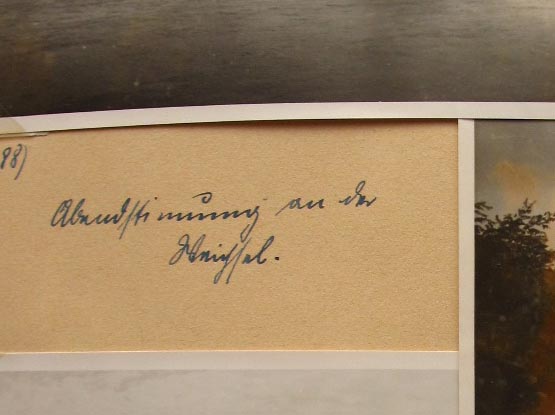 98)
Abendstimmung an der
Weichsel.